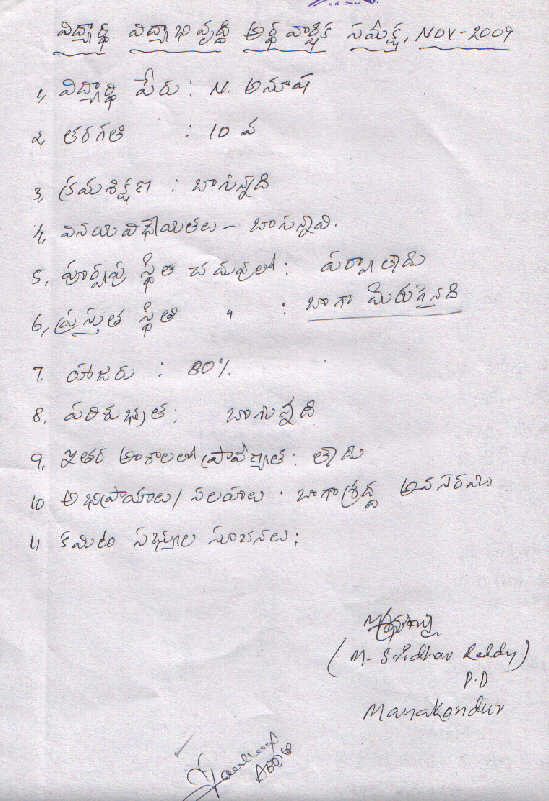 విద్యార్థి విద్యాభివృద్ధి అర్థ వార్షిక సమీక్ష, NOV-2009
1, విద్యార్థి పేరు : N. అనూష
2, తరగతి : 10 వ
3, క్రమశిక్షణ : బాగున్నది
4, వినయవిధేయతలు - బాగున్నవి.
5, పూర్వపు స్థితి చదువులో : పర్వాలేదు
6, ప్రస్తుత స్థితి " : బాగా మెరుగైనది
7. హాజరు : 80%.
8. పరిశుభ్రత : బాగున్నది
9, ఇతర అంశాలలో ప్రావీణ్యత : లేదు
10 అభిప్రాయాలు/సలహాలు : బాగా శ్రద్ధ అవసరము
11 కమిటీ సభ్యుల సూచనలు :
(M. Sridhar Reddy)
P.D
Manakondur